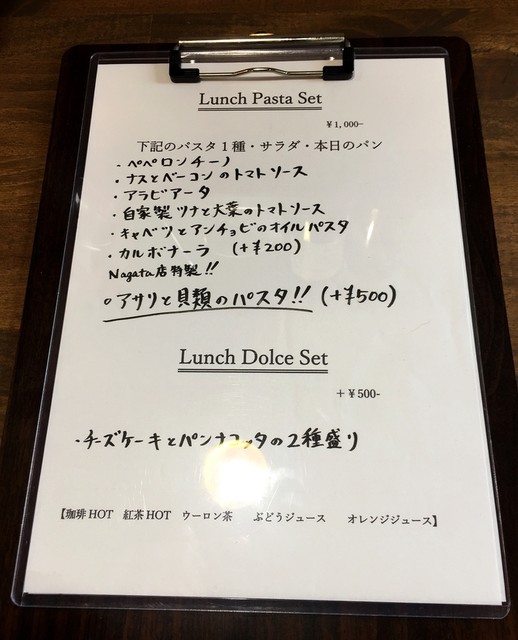 Lunch Pasta Set
¥1,000-
下記のパスタ1種・サラダ・本日のパン
・ペペロンチーノ
・ナスとベーコンのトマトソース
・アラビアータ
・自家製ツナと大葉のトマトソース
・キャベツとアンチョビのオイルパスタ
・カルボナーラ (+¥200)
Nagata店特製!!
○アサリと貝類のパスタ!! (+¥500)
Lunch Dolce Set
+¥500-
・チーズケーキとパンナコッタの2種盛り
【珈琲HOT 紅茶HOT ウーロン茶 ぶどうジュース オレンジジュース】